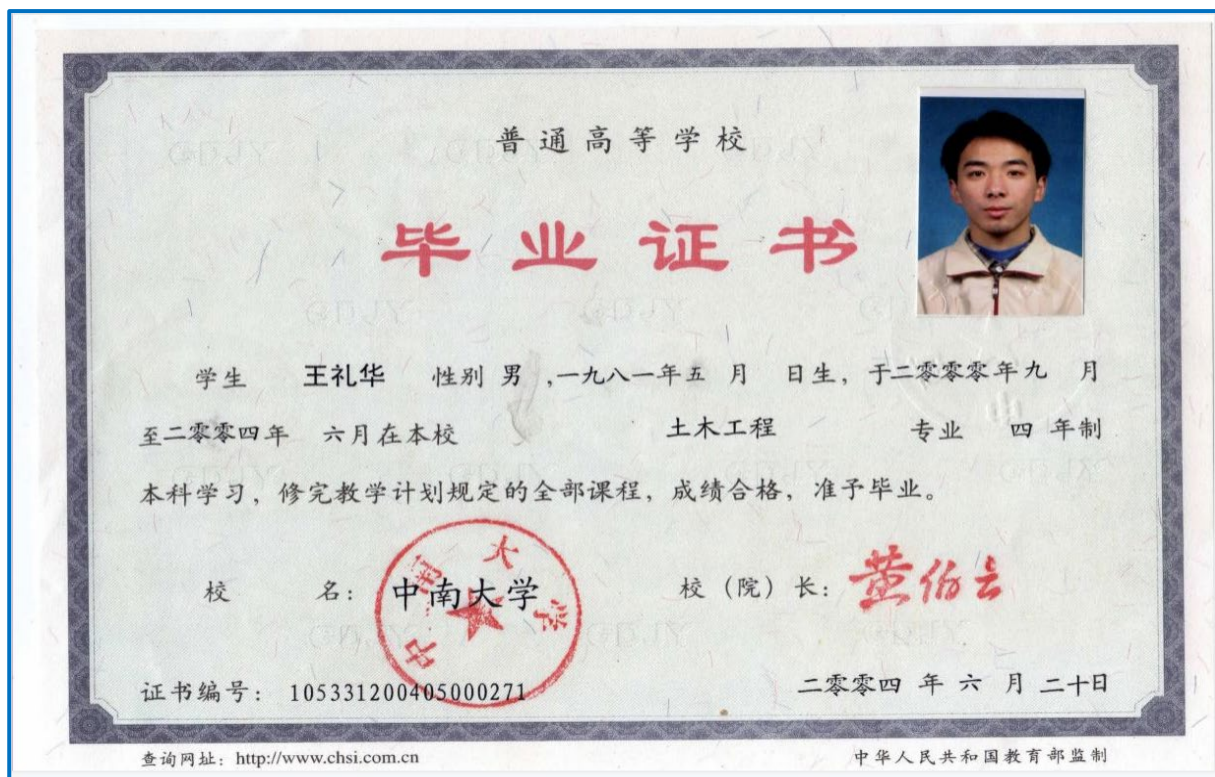 普通高等学校
毕业证书
学生 王礼华 性别 男 ,一九八一年五 月 日生，于二零零零年九 月
至二零零四年 六月在本校 土木工程 专业 四 年制
本科学习，修完教学计划规定的全部课程，成绩合格，准予毕业。
校 名： 中南大学 校（院）长： 黄伯云
中南大学
证书编号： 105331200405000271 二零零四 年 六 月 二十日
查询网址：http://www.chsi.com.cn 中华人民共和国教育部监制